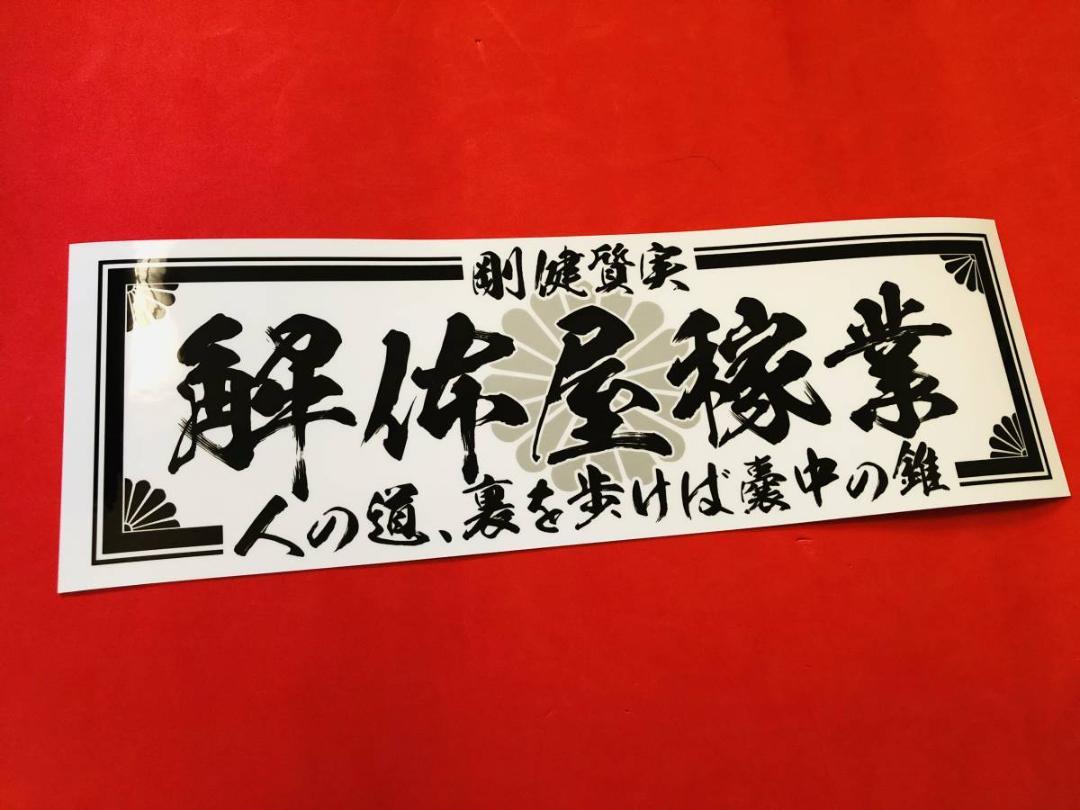 剛健質実
解体屋稼業
人の道、裏を歩けば嚢中の錐